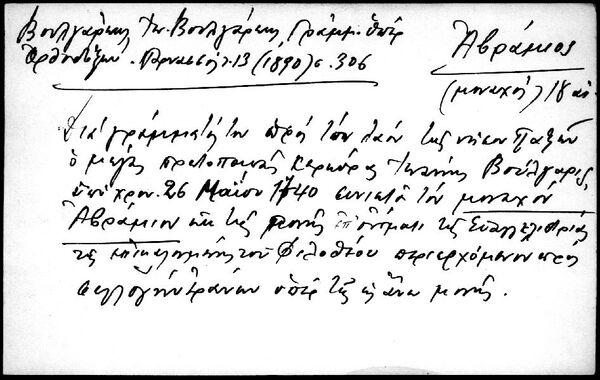 Βουλγάρεως Ἰω. Βουλγάρεως Γράμμ. ὑπὲρ
Ὀρθοδόξων. Παρνασσός τ. 13 (1890) σ. 306
Ἀβράμιος
(μοναχός) 18 αἰ.
Διὰ γράμματός του πρὸς τὸν λαὸν τῆς νήσου Παξῶν
ὁ μέγας πρωτοπαπᾶς Κερκύρας Ἰωάννης Βούλγαρις
ὑπὸ χρον. 26 Μαΐου 1740 συνιστᾷ τὸν μοναχὸν
Ἀβράμιον ἐκ τῆς μονῆς ἐπ' ὀνόματι τῆς Εὐαγγελιστρίας
τῆς ἐπικαλουμένης τοῦ Φιλοθέου περιερχόμενον πρὸς
συλλογὴν ἐράνων ὑπὲρ τῆς ὡς ἄνω μονῆς.